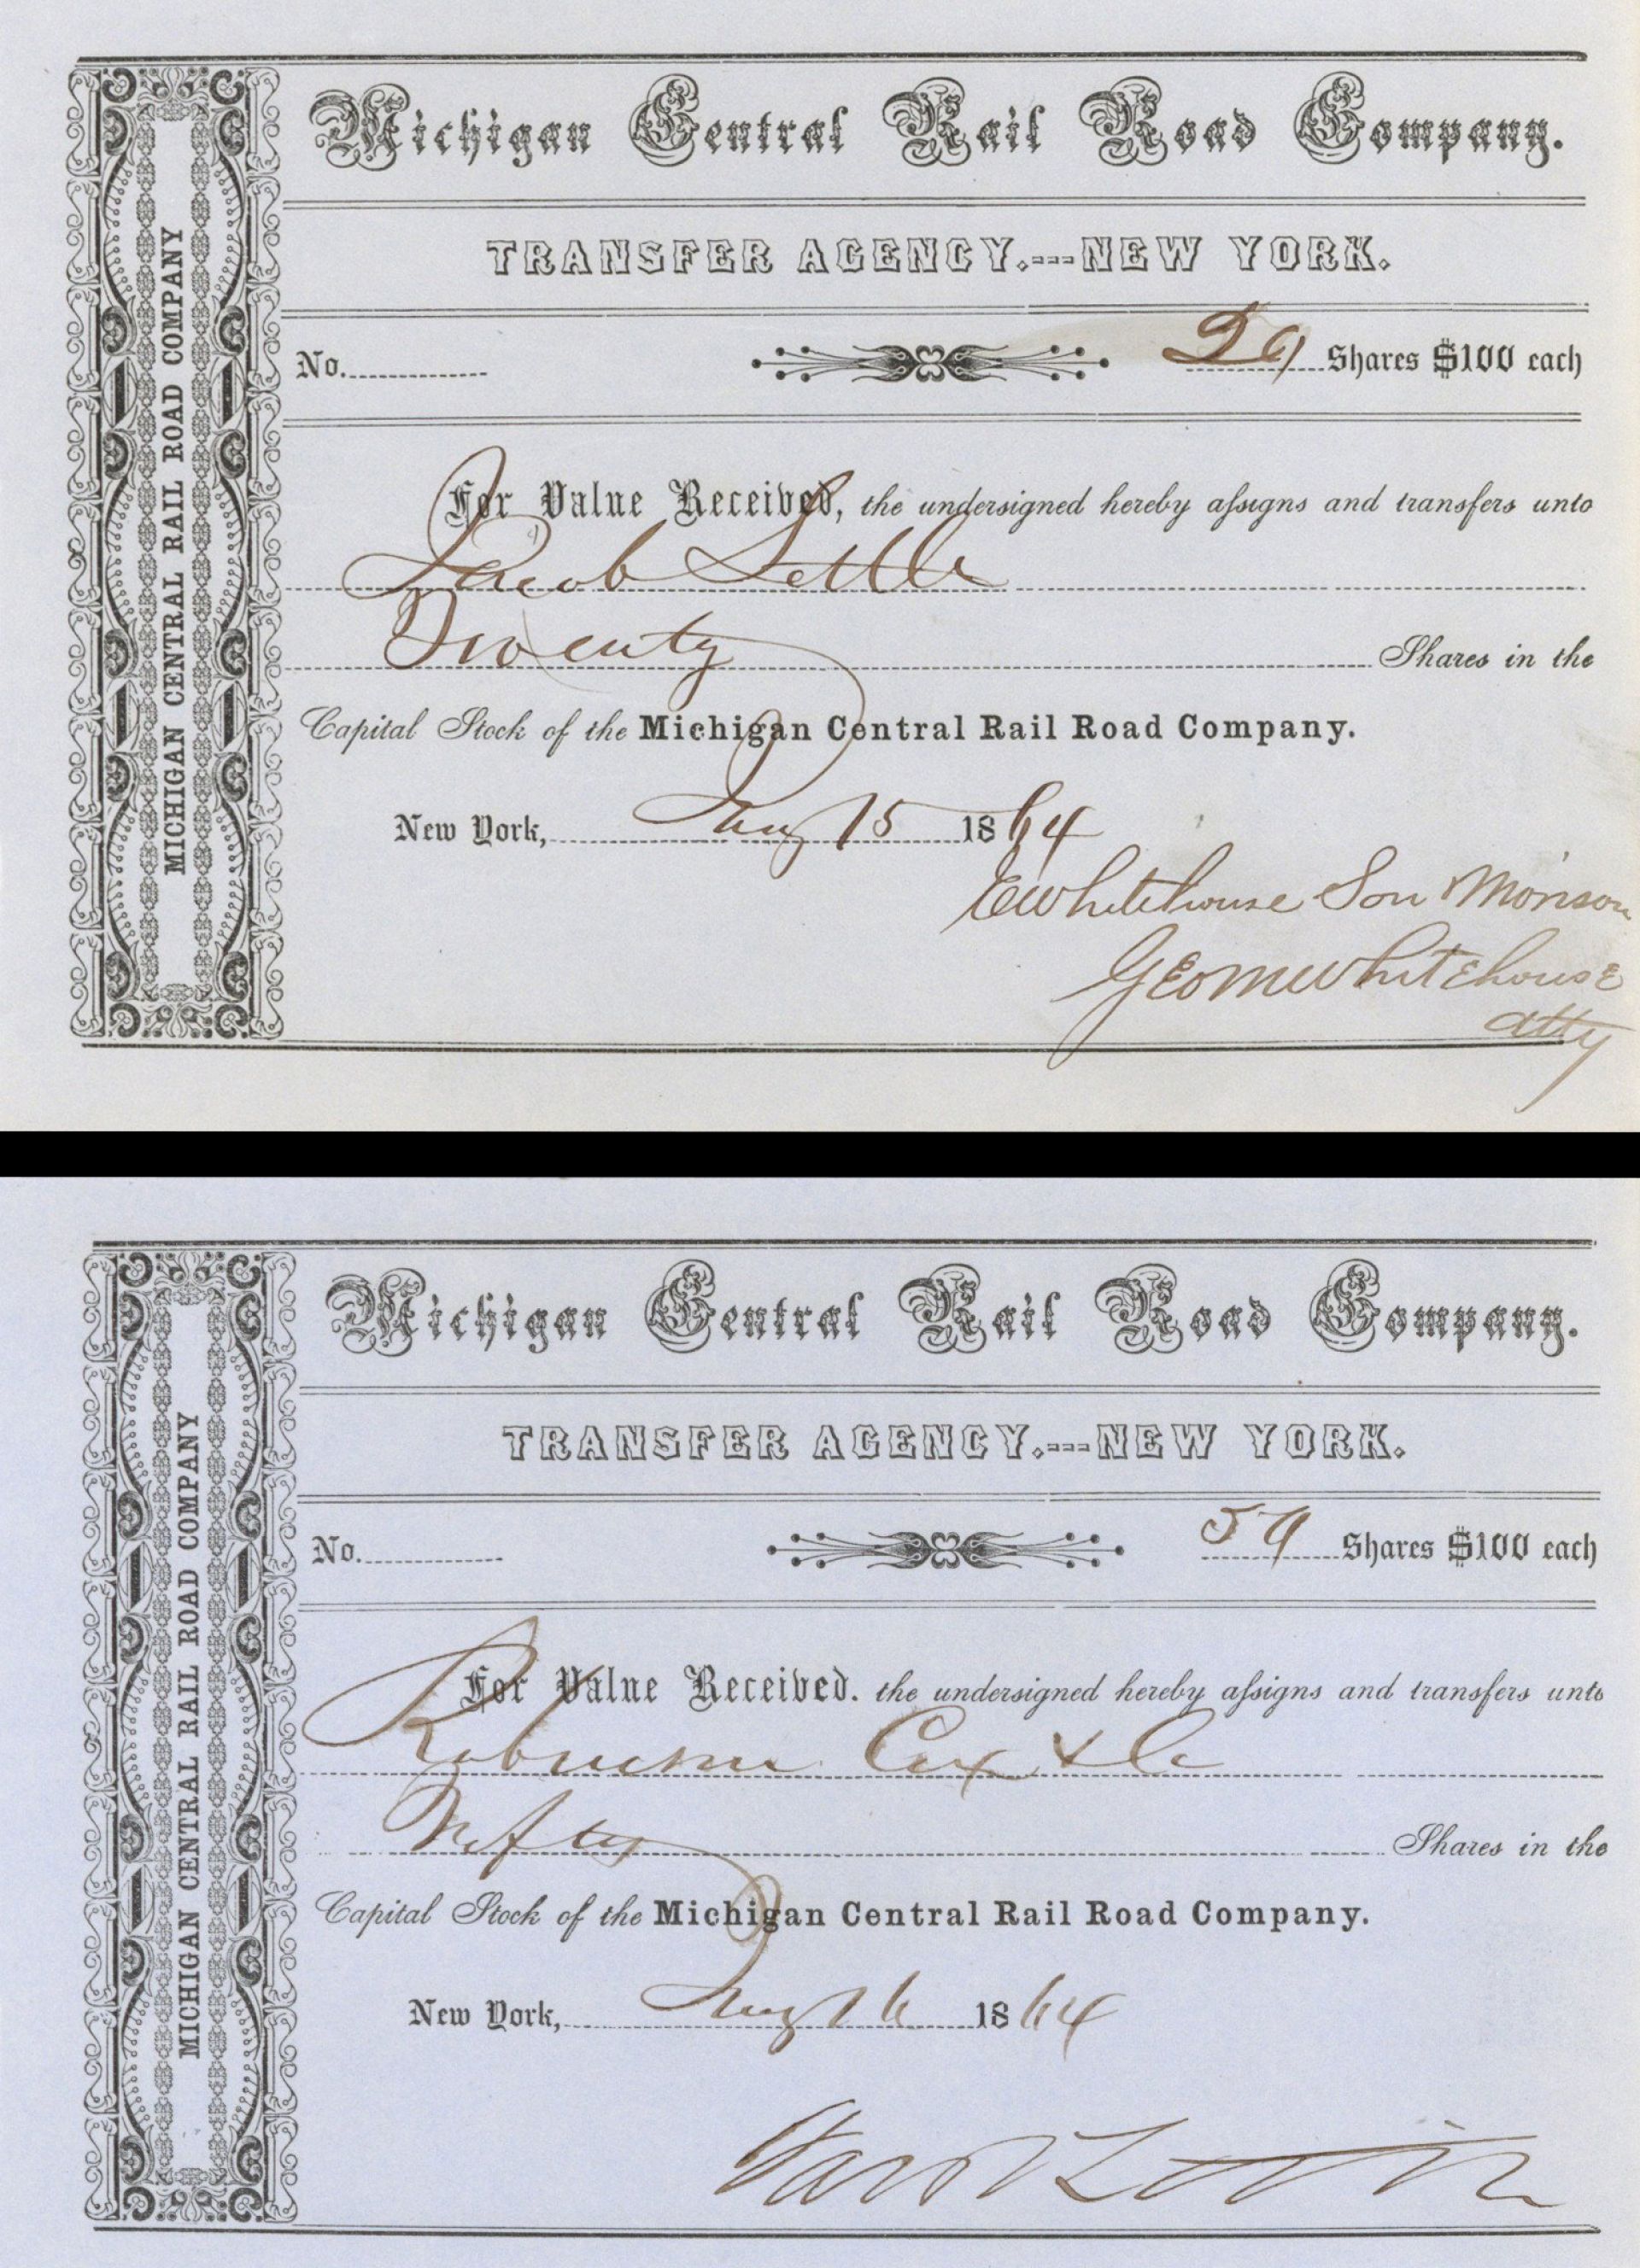 Michigan Central Rail Road Company.
TRANSFER AGENCY.---NEW YORK.
MICHIGAN CENTRAL RAIL ROAD COMPANY
No. 20 Shares $100 each
For Value Received, the undersigned hereby assigns and transfers unto
Jacob Little
Twenty Shares in the
Capital Stock of the Michigan Central Rail Road Company.
New York, Aug 15 1864
EWhitehouse Son & Morison
GEOMWhitEhousE
atty
Michigan Central Rail Road Company.
TRANSFER AGENCY.---NEW YORK.
MICHIGAN CENTRAL RAIL ROAD COMPANY
No. 50 Shares $100 each
For Value Received. the undersigned hereby assigns and transfers unto
Cox & Co
Fifty Shares in the
Capital Stock of the Michigan Central Rail Road Company.
New York, Aug 16 1864
Jacob Little